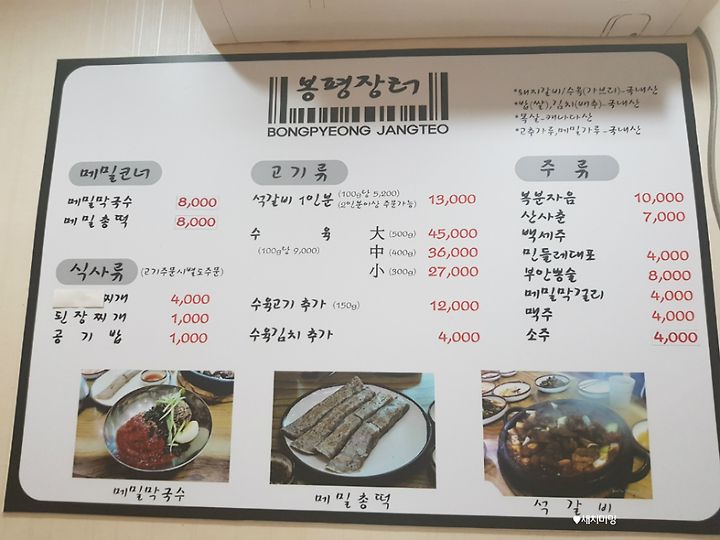 봉평장터
BONGPYEONG JANGTEO
*돼지갈비/수육(가브리)-국내산
*쌀(쌀),김치(배추)-국내산
*목살-캐나다산
*고추가루,메밀가루-국내산
메밀코너
메밀막국수 8,000
메밀총떡 8,000
식사류 (고기주문시별도주문)
찌개 4,000
된장찌개 1,000
공기밥 1,000
고기류
석갈비 1인분 (100g당 5,200) (2인분이상 주문가능) 13,000
수육 大 (500g) 45,000
(100g당 9,000) 中 (400g) 36,000
小 (300g) 27,000
수육고기 추가 (150g) 12,000
수육김치 추가 4,000
주류
복분자음 10,000
산사춘 7,000
백세주
민들레대포 4,000
부안뽕술 8,000
메밀막걸리 4,000
맥주 4,000
소주 4,000
메밀막국수
메밀총떡
석갈비
♥새치미밍